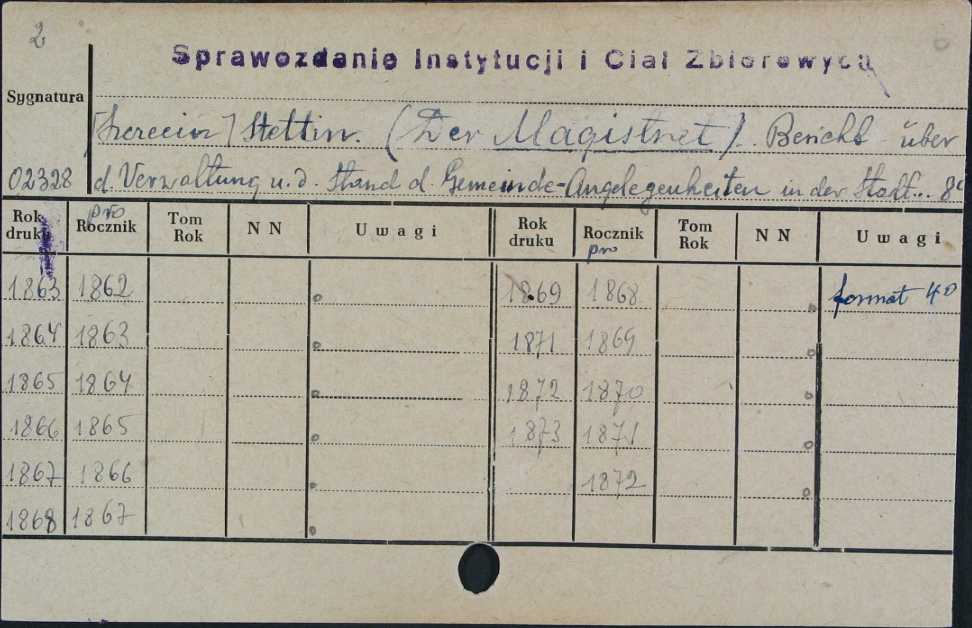 2
Sprawozdanie Instytucji i Ciał Zbiorowych
Sygnatura
[Szczecin] Stettin. (Der Magistret). Bericht über
02328 d. Verwaltung u. d. Stand d. Gemeinde-Angelegenheiten in der Stadt..
Rok druku pro Rocznik Tom Rok N N Uwagi Rok druku Rocznik pro Tom Rok N N Uwagi
1863 1862 1869 1868 format 40
1864 1863 1871 1869
1865 1864 1872 1870
1866 1865 1873 1871
1867 1866 1872
1868 1867